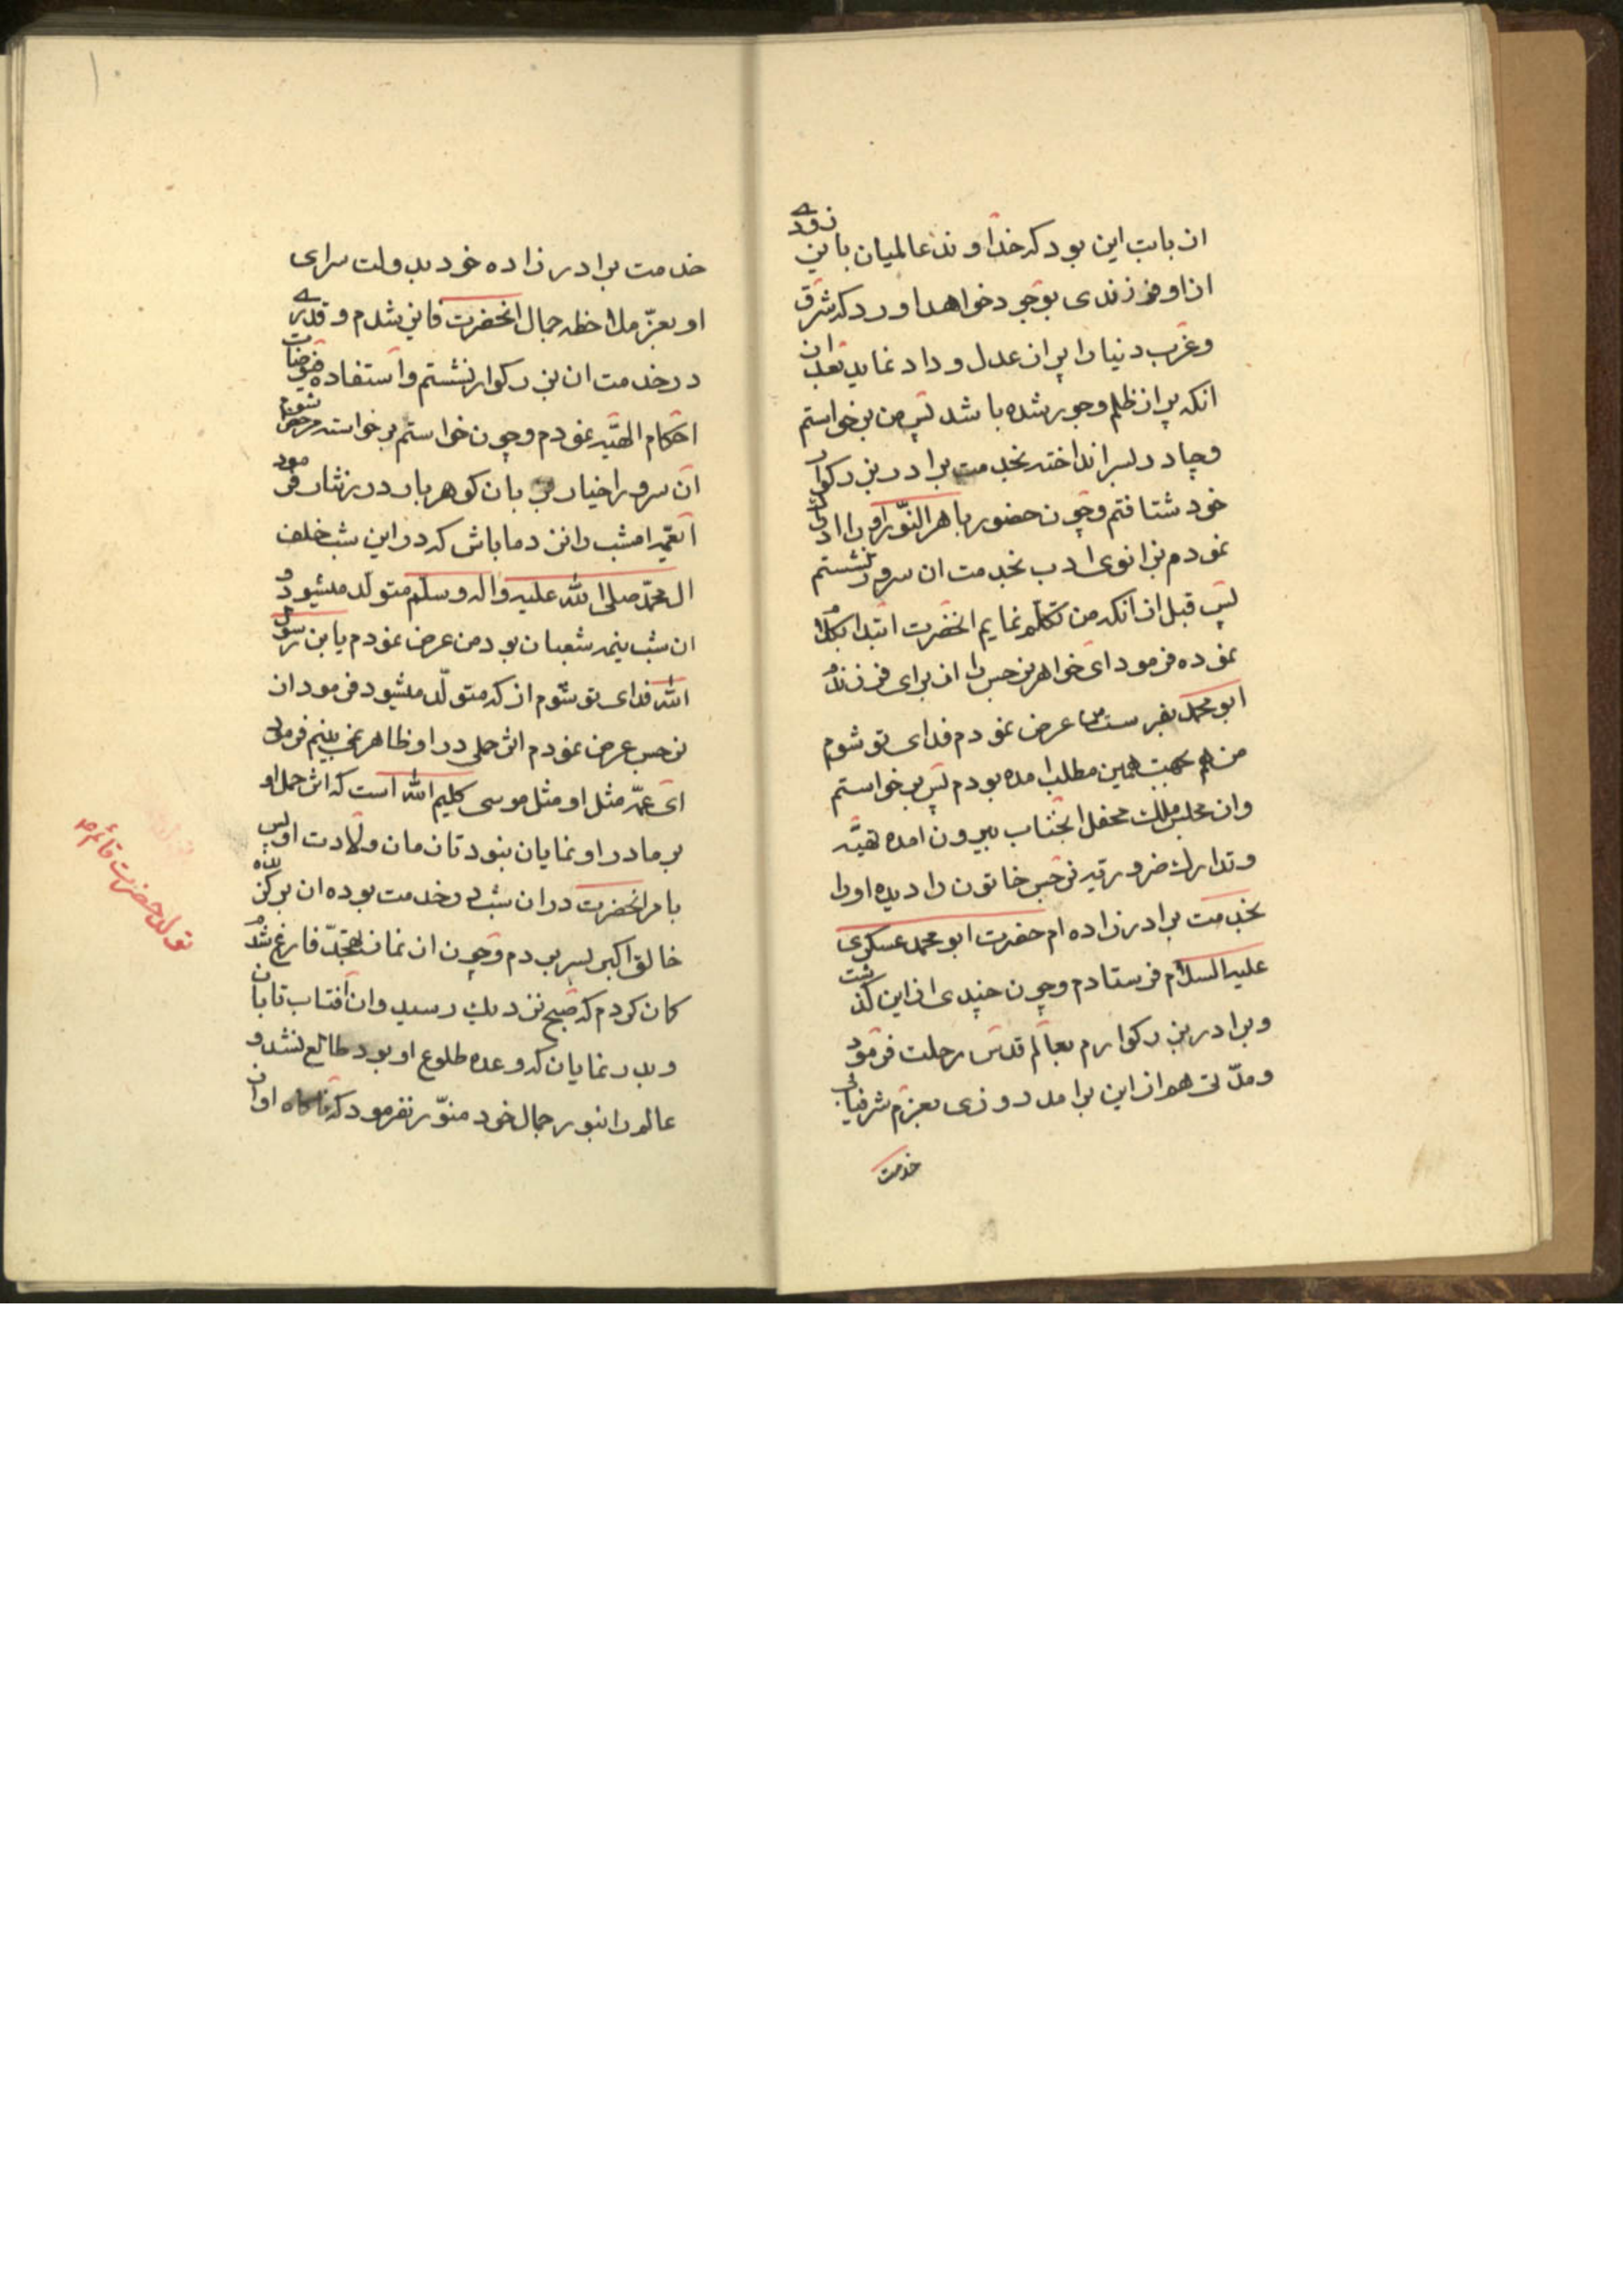 از بابت این بود که خداوند عالمیان باین زودے
از او فرزندی بوجود خواهد اورد که شرق
وغرب دنیا را پر از عدل و داد نماید بعد از
انکه پر از ظلم وجور شده باشد پس من برخواستم
وچادر بسر انداخته بخدمت برادر بزرکوار
خود شتافتم وچون حضور باهر النّور او را ادراک
نمودم بزانوی ادب بخدمت ان سرور نشستم
پس قبل از انکه من تکلّم نمایم انحضرت ابتدا بکلام
نموده فرمود ای خواهر نرجس را از برای فرزندم
ابو محمد بفرست من عرض نمودم فدای تو شوم
من هم بجهت همین مطلب امده بودم پس برخواستم
وازن مجلس ملک محفل انجناب بیرون امده تهیّه
وتدارک ضروریه نرجس خاتون را دیده اورا
بخدمت برادرزاده ام حضرت ابو محمد عسکری
علیه السلام فرستادم وچون چندی از این گذشت
وبرادر بزرکوارم بعالم قدس رحلت فرمود
ومدّتی هم از این برامد روزی بعزم شرفیابی
خدمت
خدمت برادرزاده خود بدولت سرای
او بعزّ ملاحظه جمال انحضرت فایز شدم و قدرے
در خدمت ان بزرکوار نشستم واستفاده فیوضات
احکام الهیّه نمودم وچون خواستم برخواسته مرخص شوم
ان سرور اخیار بزبان کوهر بار درر نثار فرمود
ایعمّه امشب را نزد ما باش که در این شب خلف
ال محمّد صلی الله علیه واله وسلّم متولّد میشود و
ان شب نیمه شعبان بود من عرض نمودم یابن رسول
الله فدای تو شوم از که متولّد میشود فرمود از
نرجس عرض نمودم اثر حملی در او ظاهر نمی بینم فرمود
ای عمّه مثل او مثل موسی کلیم الله است که اثر حمل او
بر مادر او نمایان نبود تا زمان ولادت او پس
بامر انحضرت در ان شب در خدمت بوده ان برکزیده
خالق اکبر بسر بردم وچون از نماز تهجّد فارغ شدم
کمان کردم که صبح نزدیک رسید وان افتاب تابان
وبدر نمایان که وعده طلوع او بود طالع نشد و
عالم را بنور جمال خود منوّر نفرمود که ناکاه اواز
تولد حضرت قائم ع